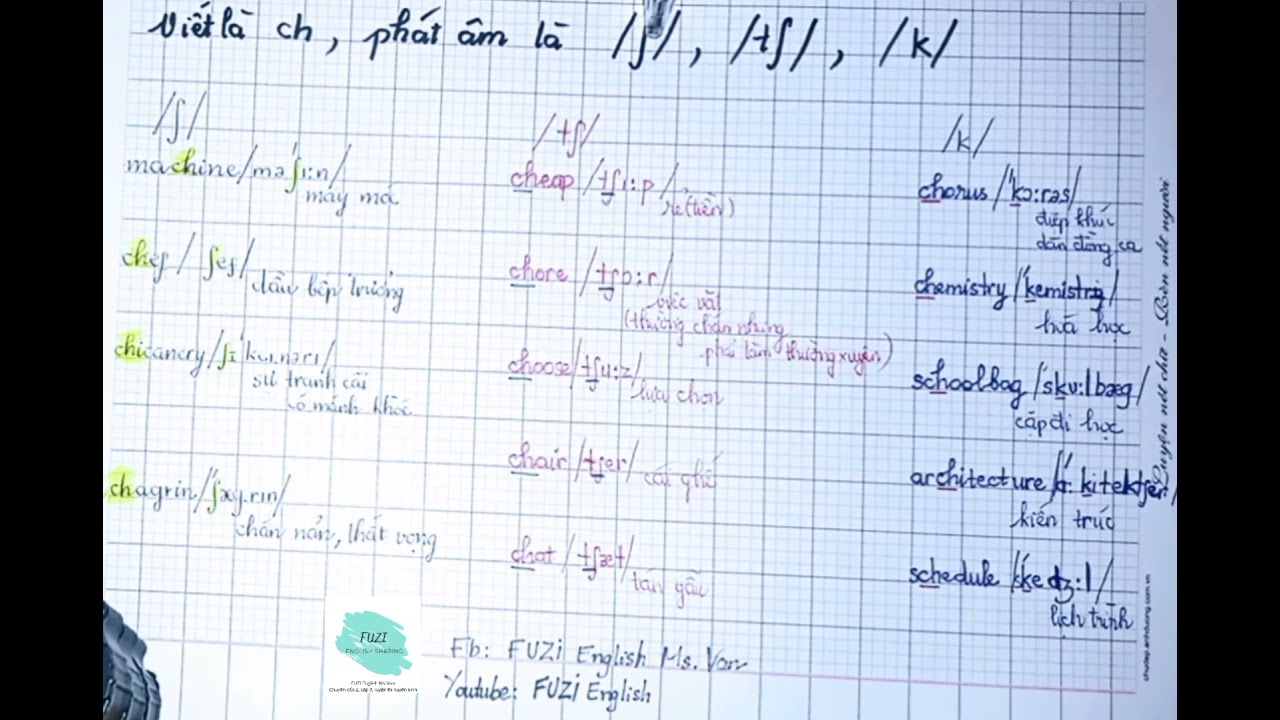 Viết là ch, phát âm là /ʃ/, /tʃ/, /k/
/ʃ/
machine /məˈʃi:n/
máy móc
chef /ʃef/
đầu bếp trưởng
chicanery /ʃɪˈkeɪ.nərɪ/
sự tranh cãi
có mánh khóe
chagrin /ˈʃæg.rɪn/
chán nản, thất vọng
/tʃ/
cheap /tʃi:p/
rẻ (tiền)
chore /tʃɔ:r/
việc vặt
(thường chán nhưng
phải làm thường xuyên)
choose /tʃu:z/
lựa chọn
chair /tʃer/
cái ghế
chat /tʃæt/
tán gẫu
/k/
chorus /ˈkɔ:rəs/
điệp khúc
dàn đồng ca
chemistry /ˈkemistri/
hóa học
schoolbag /ˈsku:lbæg/
cặp đi học
architecture
kiến trúc
schedule /ˈskedʒ:l/
lịch trình
Luyện nét chữ - Rèn nết người
chudep.anhduong.com.vn
FUZI
ENGLISH SHARING
FUZI English Ms.Van
Fb: FUZi English Ms. Van
Youtube: FUZI English